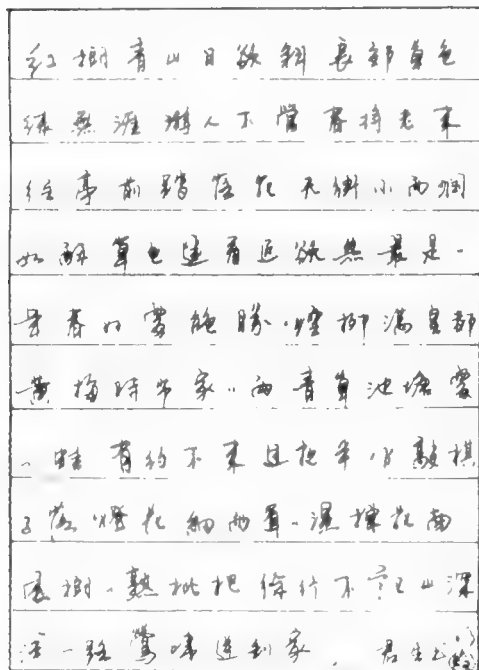 红树青山日欲斜长郊草色
绿无涯游人不管春将老来
往亭前踏落花天街小雨润
如酥草色遥看近欲無最是一
年春好處絕勝煙柳滿皇都
黄梅時节家々雨青草池塘處
々蛙有約不来过夜半闲敲棋
子落燈花細雨茸々濕楝花南
風樹々熟枇杷徐行不记山深
浅一路鶯啼送到家